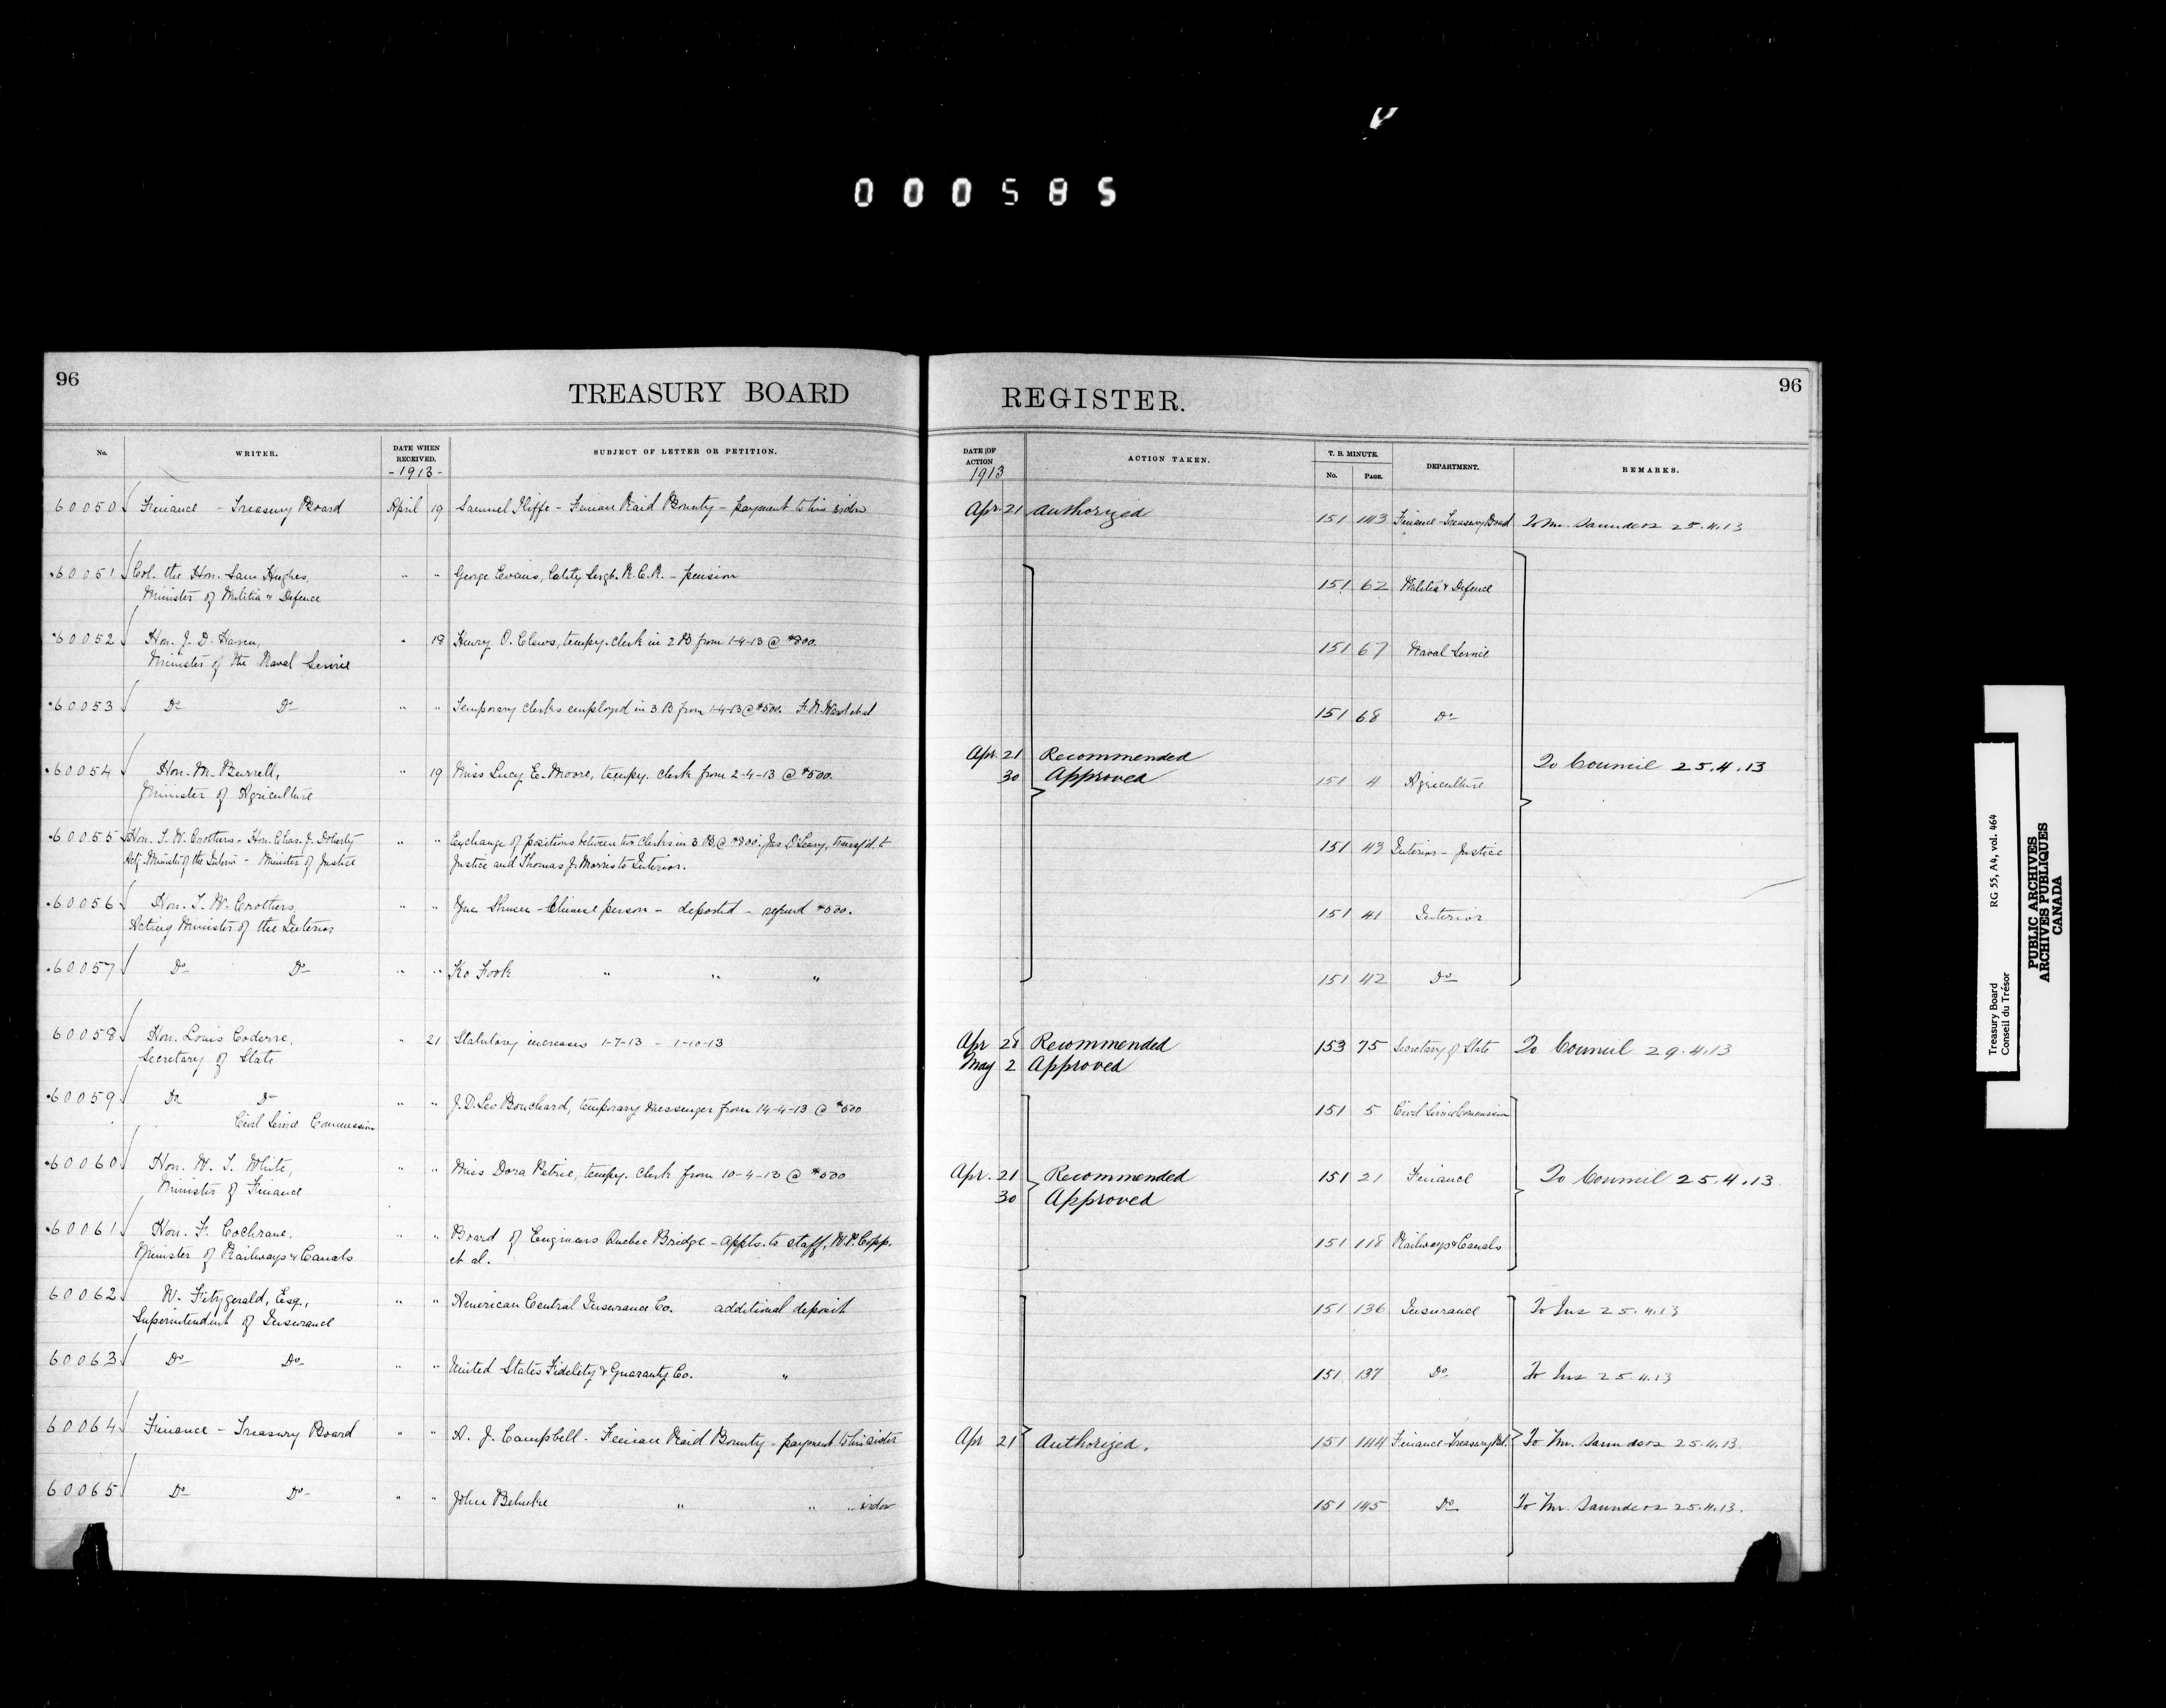 000585
96
TREASURY BOARD
REGISTER.
96
No.
WRITER.
DATE WHEN RECEIVED.
-1913-
SUBJECT OF LETTER OR PETITION.
DATE OF ACTION
1913
ACTION TAKEN.
T. B. MINUTE.
No.
PAGE.
DEPARTMENT.
REMARKS.
60050 Finance - Treasury Board April 19 Samuel Kliffe - Fenian Raid Bounty - payment to his widow Apr 21 Authorized 151 143 Finance-Treasury Board To Mr. Saunders 25.4.13
60051 Col. the Hon. Sam Hughes, " " George Evans, Rality Sergt. R.C.R. - pension 151 62 Militia & Defence
Minister of Militia & Defence
60052 Hon. J. D. Hazen, " 18 Henry O. Clews, tempy. clerk in 2 B from 1-4-13 @ $800. 151 67 Naval Service
Minister of the Naval Service
60053 Do Do " " Temporary clerks employed in 3 B from 1-4-13 @ $500. 151 68 Do
60054 Hon. M. Burrell, " 19 Miss Lucy E. Moore, tempy. clerk from 2-4-13 @ $500. Apr. 21 Recommended 151 4 Agriculture To Council 25.4.13
Minister of Agriculture 30 Approved
60055 Hon. T. W. Crothers - Hon. Chas. J. Doherty " " Exchange of positions between two clerks in 3 B @ $800. Jas O'Leary, transf'd. to 151 43 Interior - Justice
Actg. Minister of the Interior - Minister of Justice Justice and Thomas J. Morris to Interior.
60056 Hon. T. W. Crothers, " " - Chinese person - deported - refund $500. 151 41 Interior
Acting Minister of the Interior
60057 Do Do " " Ko Fook " " " 151 42 Do
60058 Hon. Louis Coderre, " 21 Statutory increases 1-7-13 - 1-10-13 Apr 28 Recommended 153 75 Secretary of State To Council 29.4.13
Secretary of State May 2 Approved
60059 Do Do " " J. D. Leo Bouchard, temporary messenger from 14-4-13 @ $500 151 5 Civil Service Commission
Civil Service Commission
60060 Hon. W. T. White, " " Miss Dora Petrie, tempy. clerk from 10-4-13 @ $500 Apr. 21 Recommended 151 21 Finance To Council 25.4.13
Minister of Finance 30 Approved
60061 Hon. F. Cochrane, " " Board of Engineers Quebec Bridge - appts. to staff, W.P. Copp. 151 118 Railways & Canals
Minister of Railways & Canals et al.
60062 W. Fitzgerald, Esq., " " American Central Insurance Co. additional deposit 151 136 Insurance To Ins 25.4.13
Superintendent of Insurance
60063 Do Do " " United States Fidelity & Guaranty Co. " 151 137 Do To Ins 25.4.13
60064 Finance - Treasury Board " " A. J. Campbell - Fenian Raid Bounty - payment to his sister Apr 21 Authorized. 151 144 Finance-Treasury Bd. To Mr. Saunders 25.4.13.
60065 Do Do " " John " " " widow 151 145 Do To Mr. Saunders 25.4.13.
Treasury Board RG 55, A4, vol. 464
Conseil du Trésor
PUBLIC ARCHIVES
ARCHIVES PUBLIQUES
CANADA